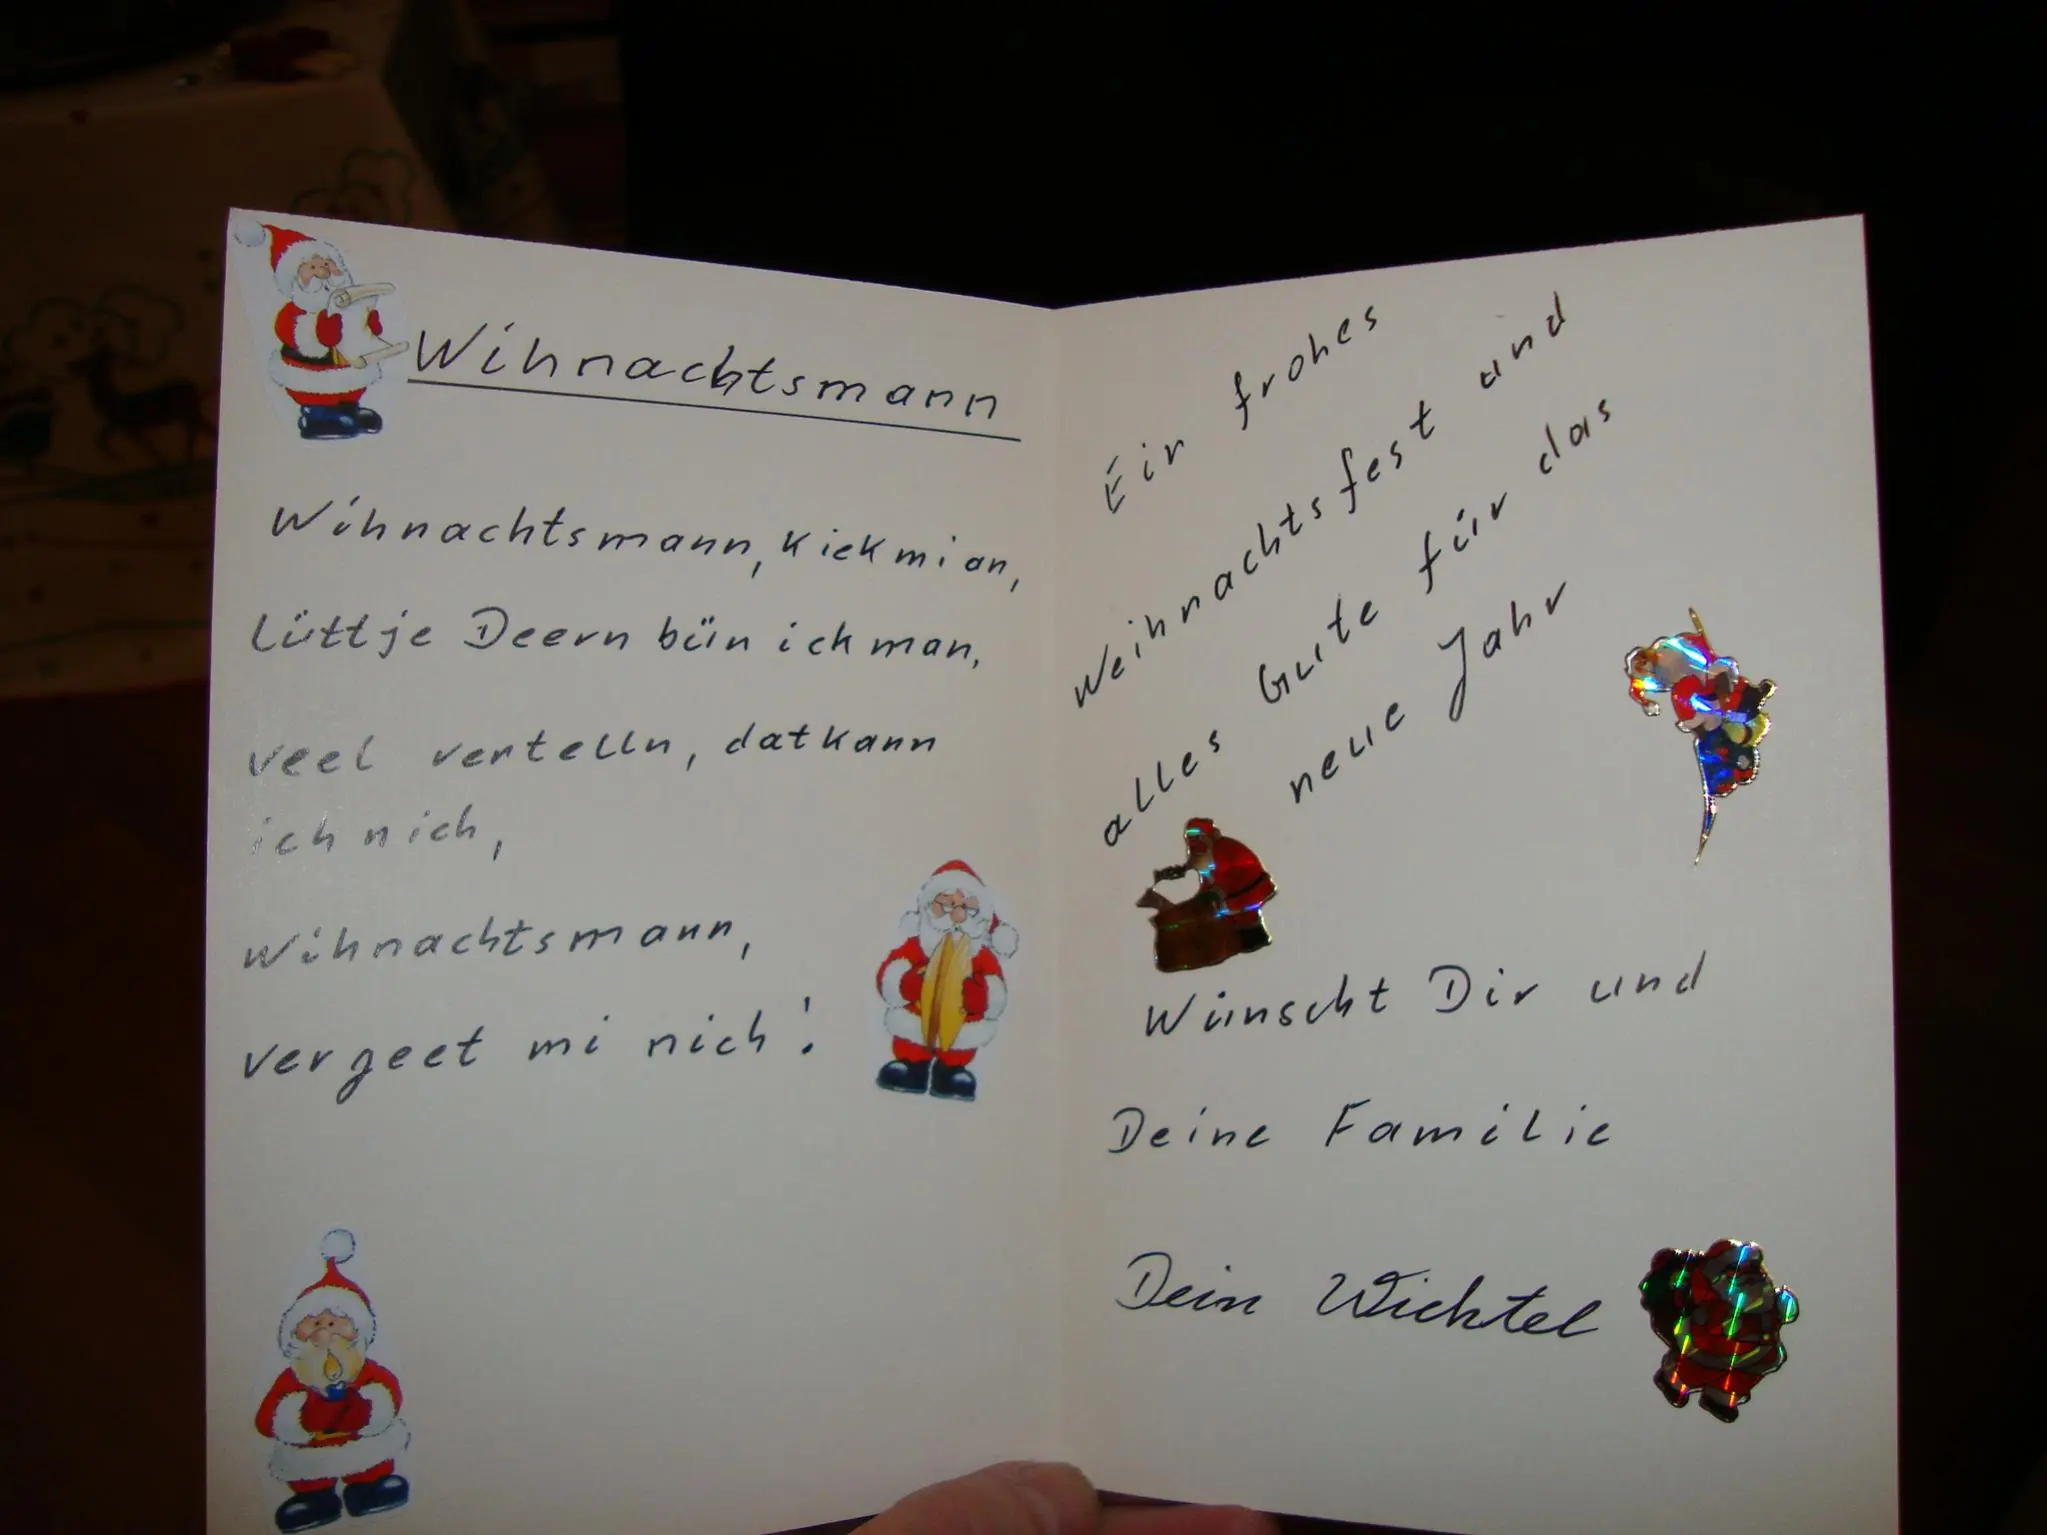 Wihnachtsmann
Wihnachtsmann, kiek mi an,
lüttje Deern bün ick man,
veel vertelln, dat kann
ich nich,
wihnachtsmann,
vergeet mi nich!
Ein frohes
Weihnachtsfest und
alles Gute für das
neue Jahr
Wünscht Dir und
Deine Familie
Dein Wichtel